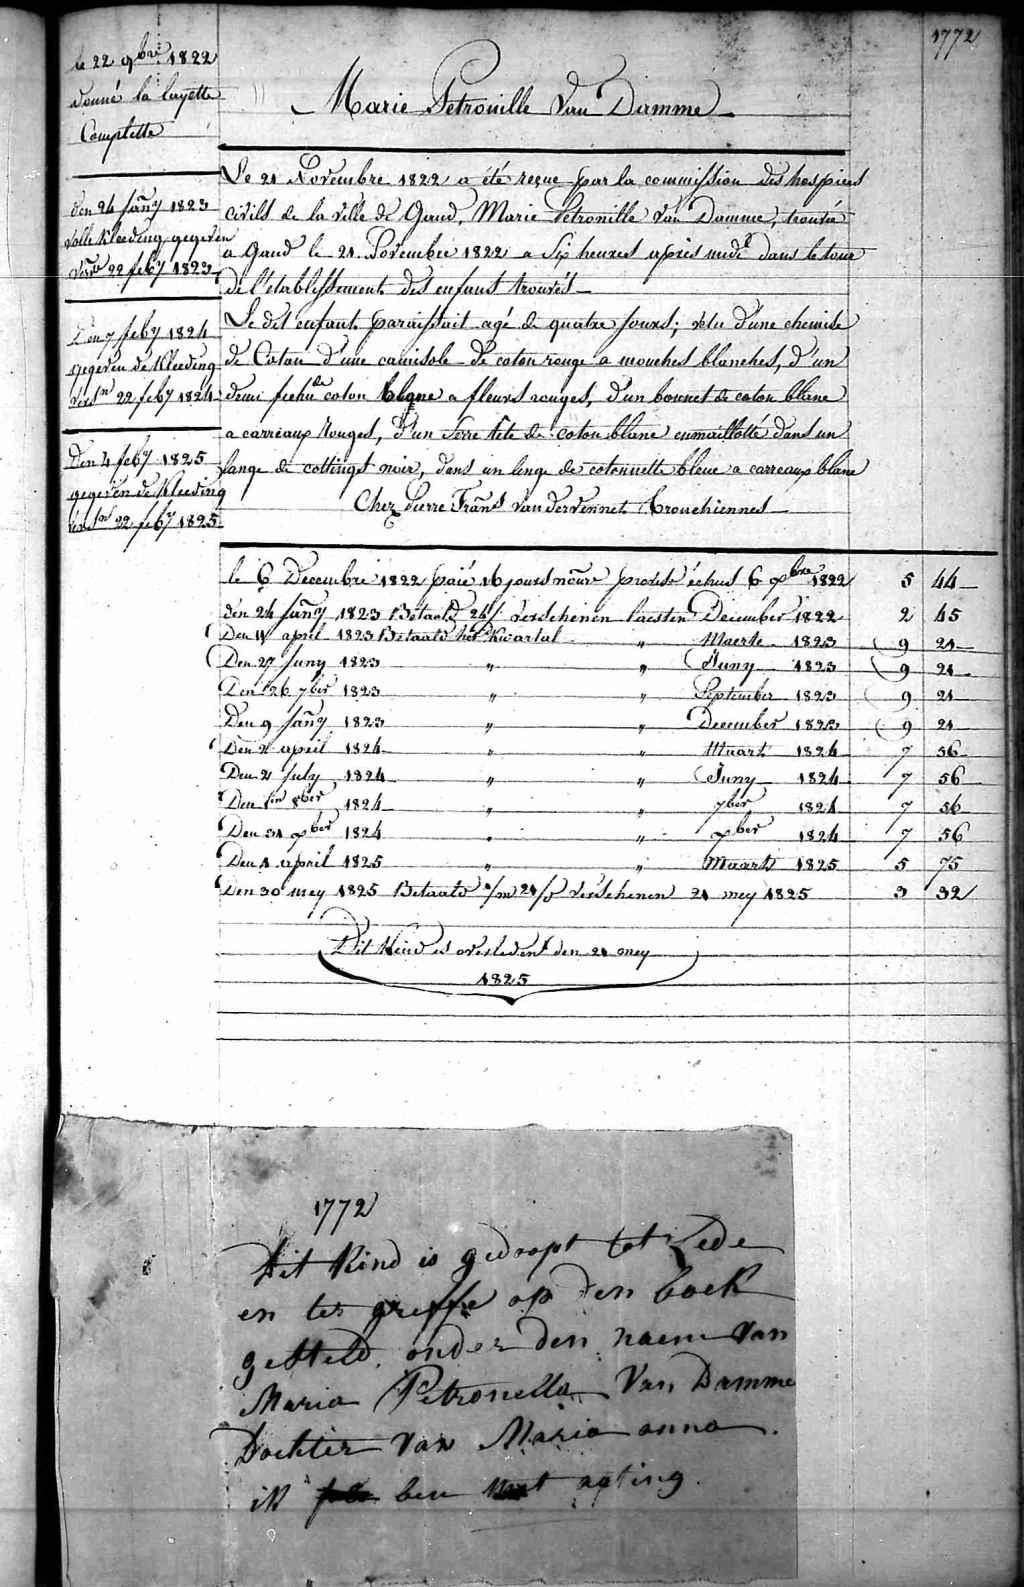 1772
le 22 9bre 1822
donné la layette
Complette
den 24 Jany 1823
volle Kleeding gegeven
versn 22 feby 1823
Den 7 feby 1824
gegeven de Kleeding
versn 22 feby 1824
Den 4 feby 1825
gegeven de Kleeding
versn 22 feby 1825
Marie Petronille Van Damme
Le 21 Novembre 1822 a été reçue par la commission des hospices
civils de la ville de Gand, Marie Petronille Van Damme, trouvée
a Gand le 21 Novembre 1822 a Six heures après midi dans le tour
de l'etablissement des enfants trouvés
Le dit enfant paraissait agé de quatre jours; vetu d'une chemise
de Coton d'une camisole de coton rouge a mouches blanches, d'un
demi fichu de coton a fleurs rouges, d'un bonnet de coton blanc
a carreaux rouges, d'un serre tête de coton blanc emmaillotté dans un
lange de cottinget noir, dans un linge de cotonnette bleue a carreaux blanc
Chez Pierre Frans van dervennet Tronchiennes
le 6 Decembre 1822 payé 16 jours noure provise échus 6 xbre 1822 5 44
den 24 Jany 1823 Betaald 24/ verschenen laesten December 1822 2 45
Den 14 april 1823 Betaald het Kwartal " Maerte 1823 9 21
Den 27 Juny 1823 " " Juny 1823 9 21
Den 26 7ber 1823 " " September 1823 9 21
Den 9 Jany 1823 " " December 1823 9 21
Den 2 april 1824 " " Maart 1824 7 56
Den 21 July 1824 " " Juny 1824 7 56
Den 1en 8ber 1824 " " 7ber 1824 7 56
Den 31 xber 1824 " " xber 1824 7 56
Den 1 april 1825 " " Maart 1825 5 75
Den 30 mey 1825 Betaald a/m 21/5 verschenen 21 mey 1825 3 32
Dit Kind is overleden den 21 mey
1825
1772
Dit Kind is gedoopt tot Lede
en ter greffe op den boek
gesteld onder den naem van
Maria Petronella Van Damme
Dochter van Maria anna
ik ben agting.